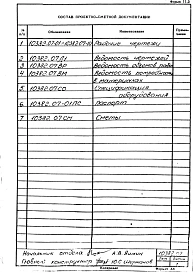 Форма 11.2
СОСТАВ ПРОЕКТНО-СМЕТНОЙ ДОКУМЕНТАЦИИ
№ п/п Обозначение Наименование Приме-чание
1 10382.07.01-10382.07-10 Рабочие чертежи
2 10382.07.01 Ведомость чертежей
3 10382.07ВР Ведомость объемов работ
4 10382.07ВМ Ведомость потребности
в материалах
5 10382.07СО Спецификация
оборудования
6 10382.07-01ПС Паспорта
7 10382.07СМ Сметы
Начальник отдела А.В.
Главный конструктор Ю.С.
10382.07
Лист
Копировал Формат А4